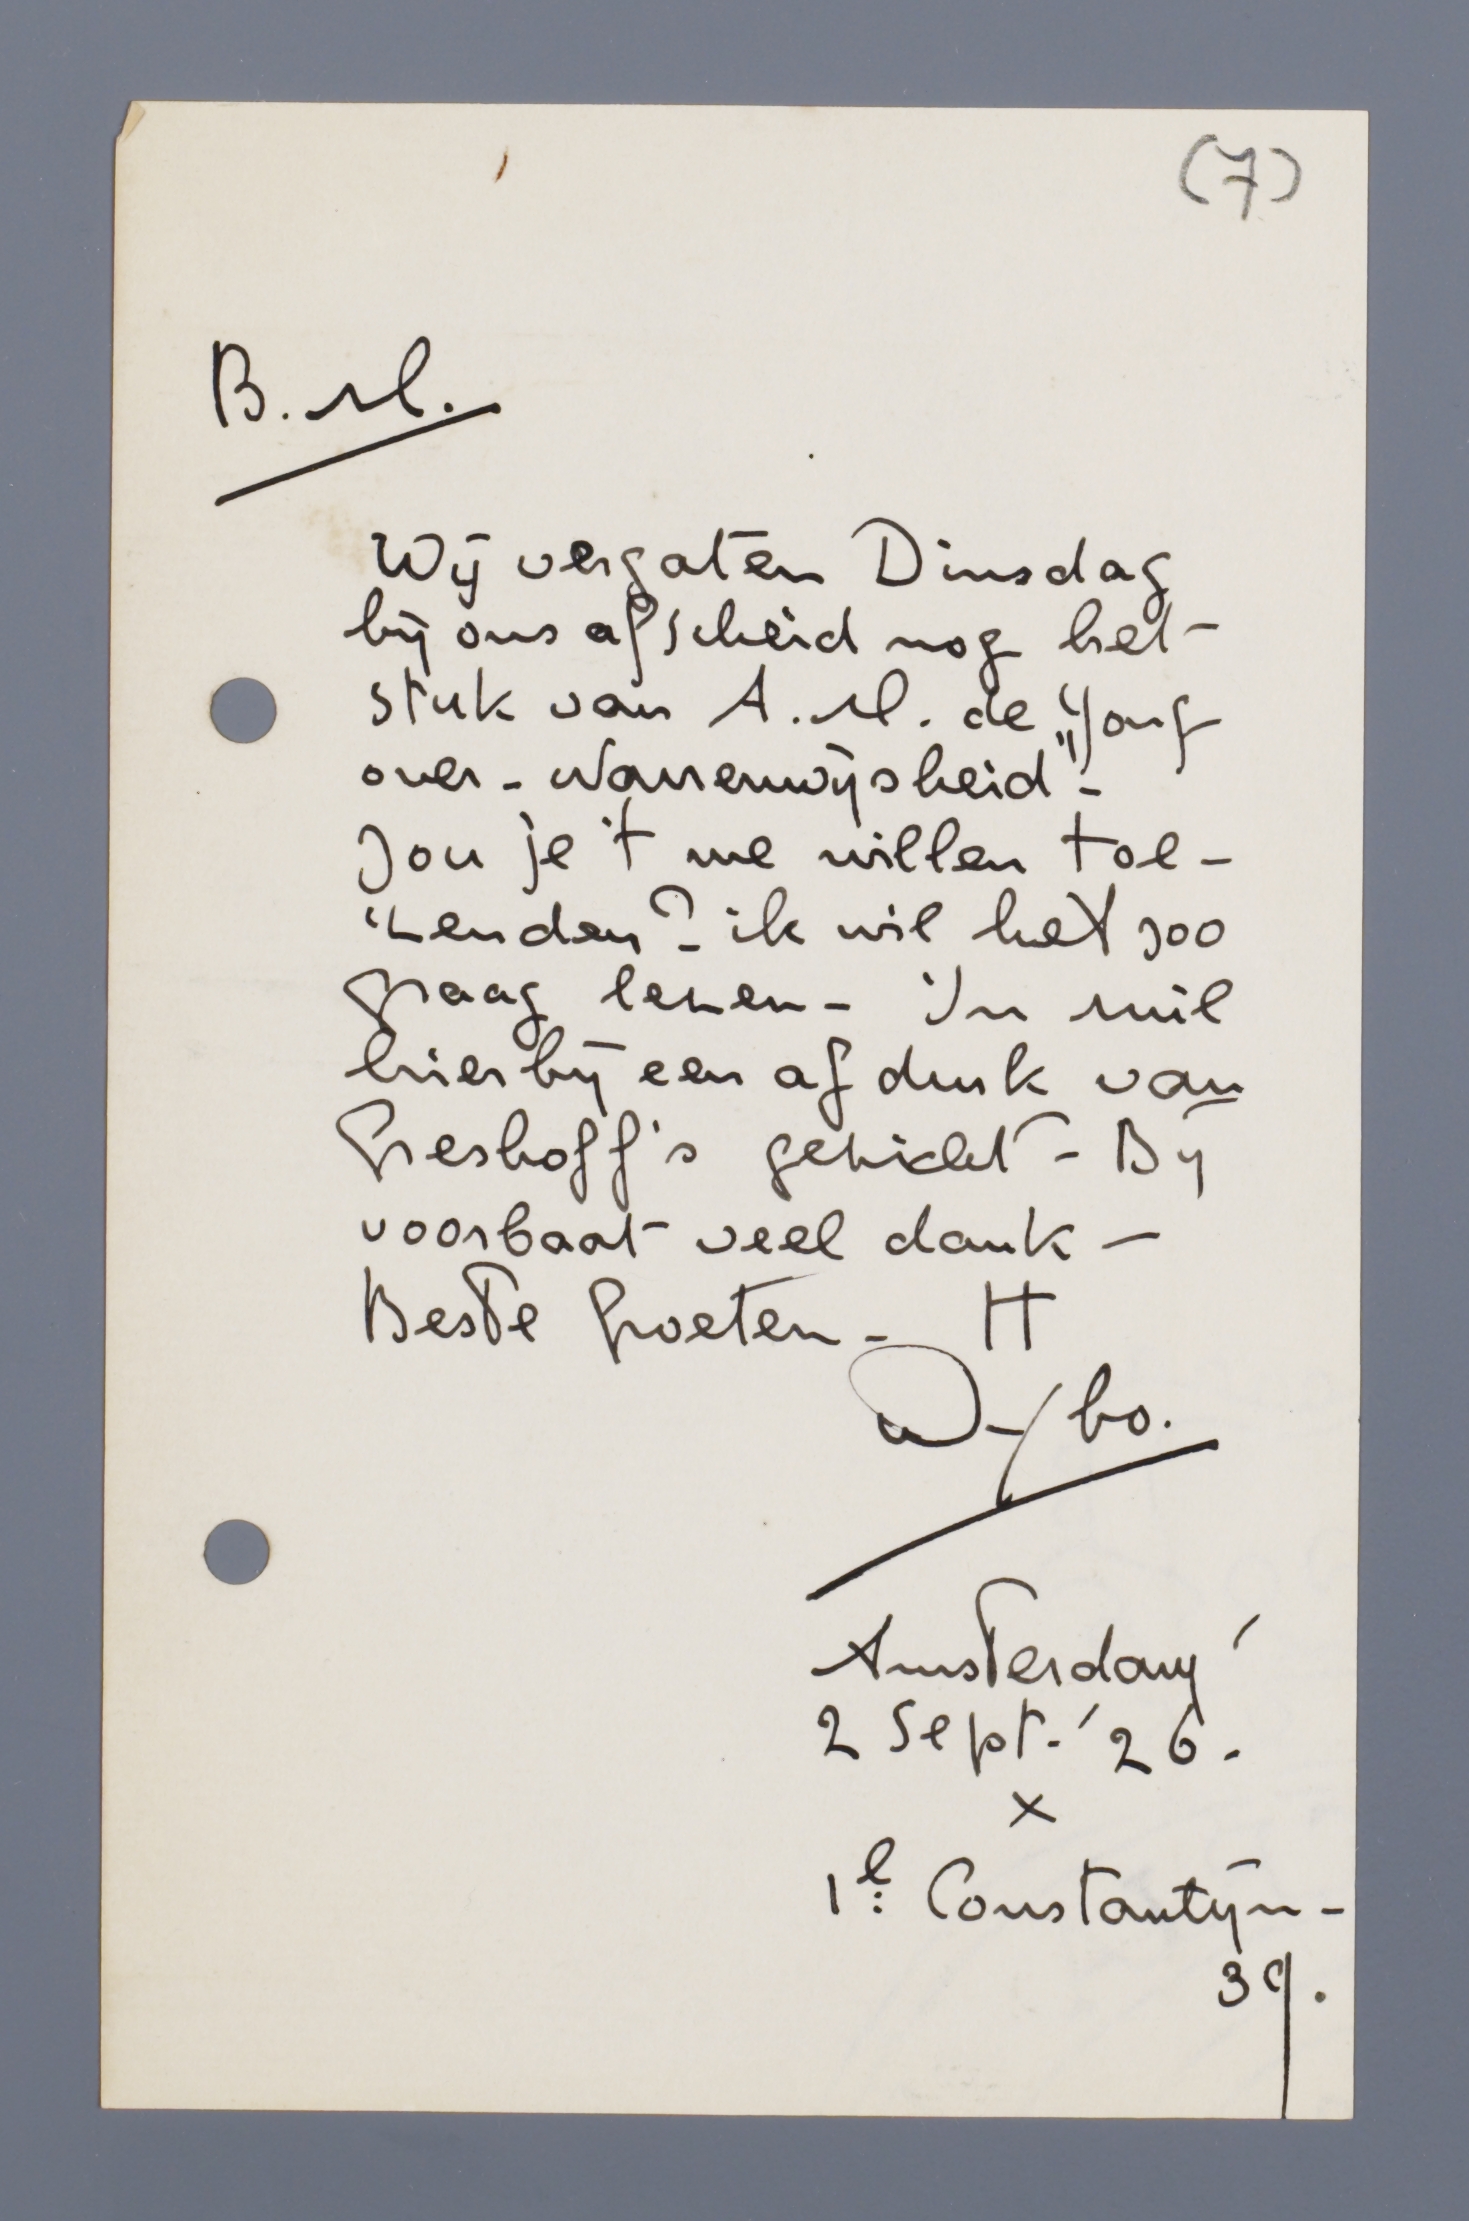 (7)
B. M.
Wij vergaten Dinsdag
bij ons afscheid nog het
stuk van A. M. de Jong
over "Narrenwijsheid"-
Zou je 't me willen toe-
zenden? - ik wil het zoo
graag lezen - In ruil
hierbij een afdruk van
Greshoff's gezicht - Bij
voorbaat veel dank -
Beste Groeten - H
Wybo.
Amsterdam
2 Sept. '26.
x
1e Constantijn-
39.